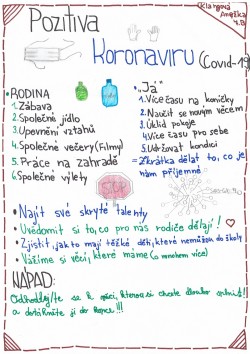 Klárgová
Anežka
4.B
Pozitiva
Koronaviru (Covid-19)
•RODINA
1. Zábava
2. Společné jídlo
3. Upevnění vztahů
4. Společné večery (Filmy)
5. Práce na zahradě
6. Společné výlety
•„Já"
1. Více času na koníčky
2. Naučit se novým věcem
3. Úklid pokoje
4. Více času pro sebe
5. Udržovat kondici
=Zkrátka dělat to, co je
nám příjemné
• Najít své skryté talenty
• Uvědomit si to, co pro nás rodiče dělají!
• Zjistit, jak to mají těžké děti, které nemůžou do školy
• Vážíme si věcí, které máme (co mnohem více)
NÁPAD:
se k práci, kterou si chcete dlouho splnit!!
a dotáhněte ji do konce!!!